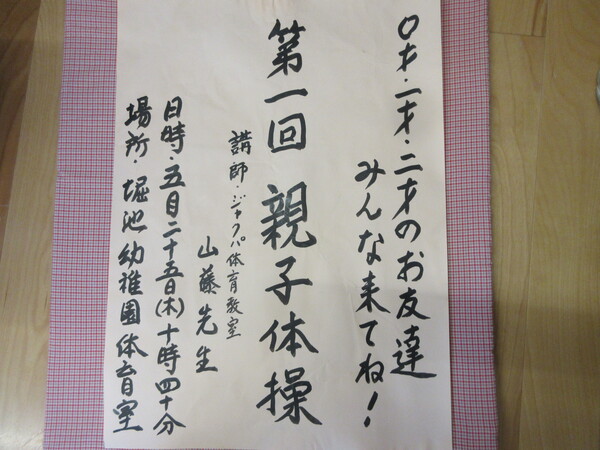 ０才・一才・二才のお友達
みんな来てね！
第一回 親子体操
講師・ジャクパ体育教室
山藤先生
日時・五月二十五日(木)十時四十分
場所・堀池幼稚園体育室